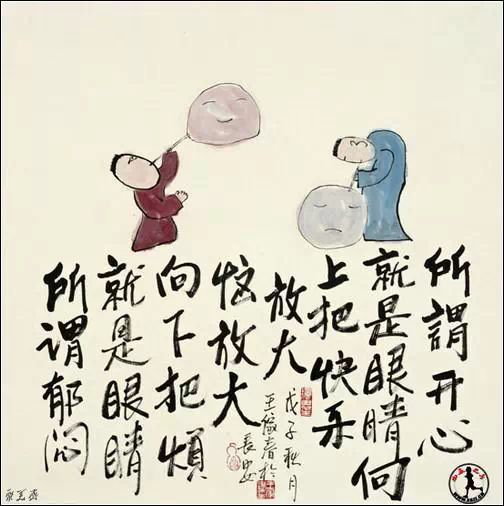 所謂开心
就是眼睛向
上把快乐
放大
所谓郁闷
就是眼睛
向下把煩
恼放大
戊子秋月
於